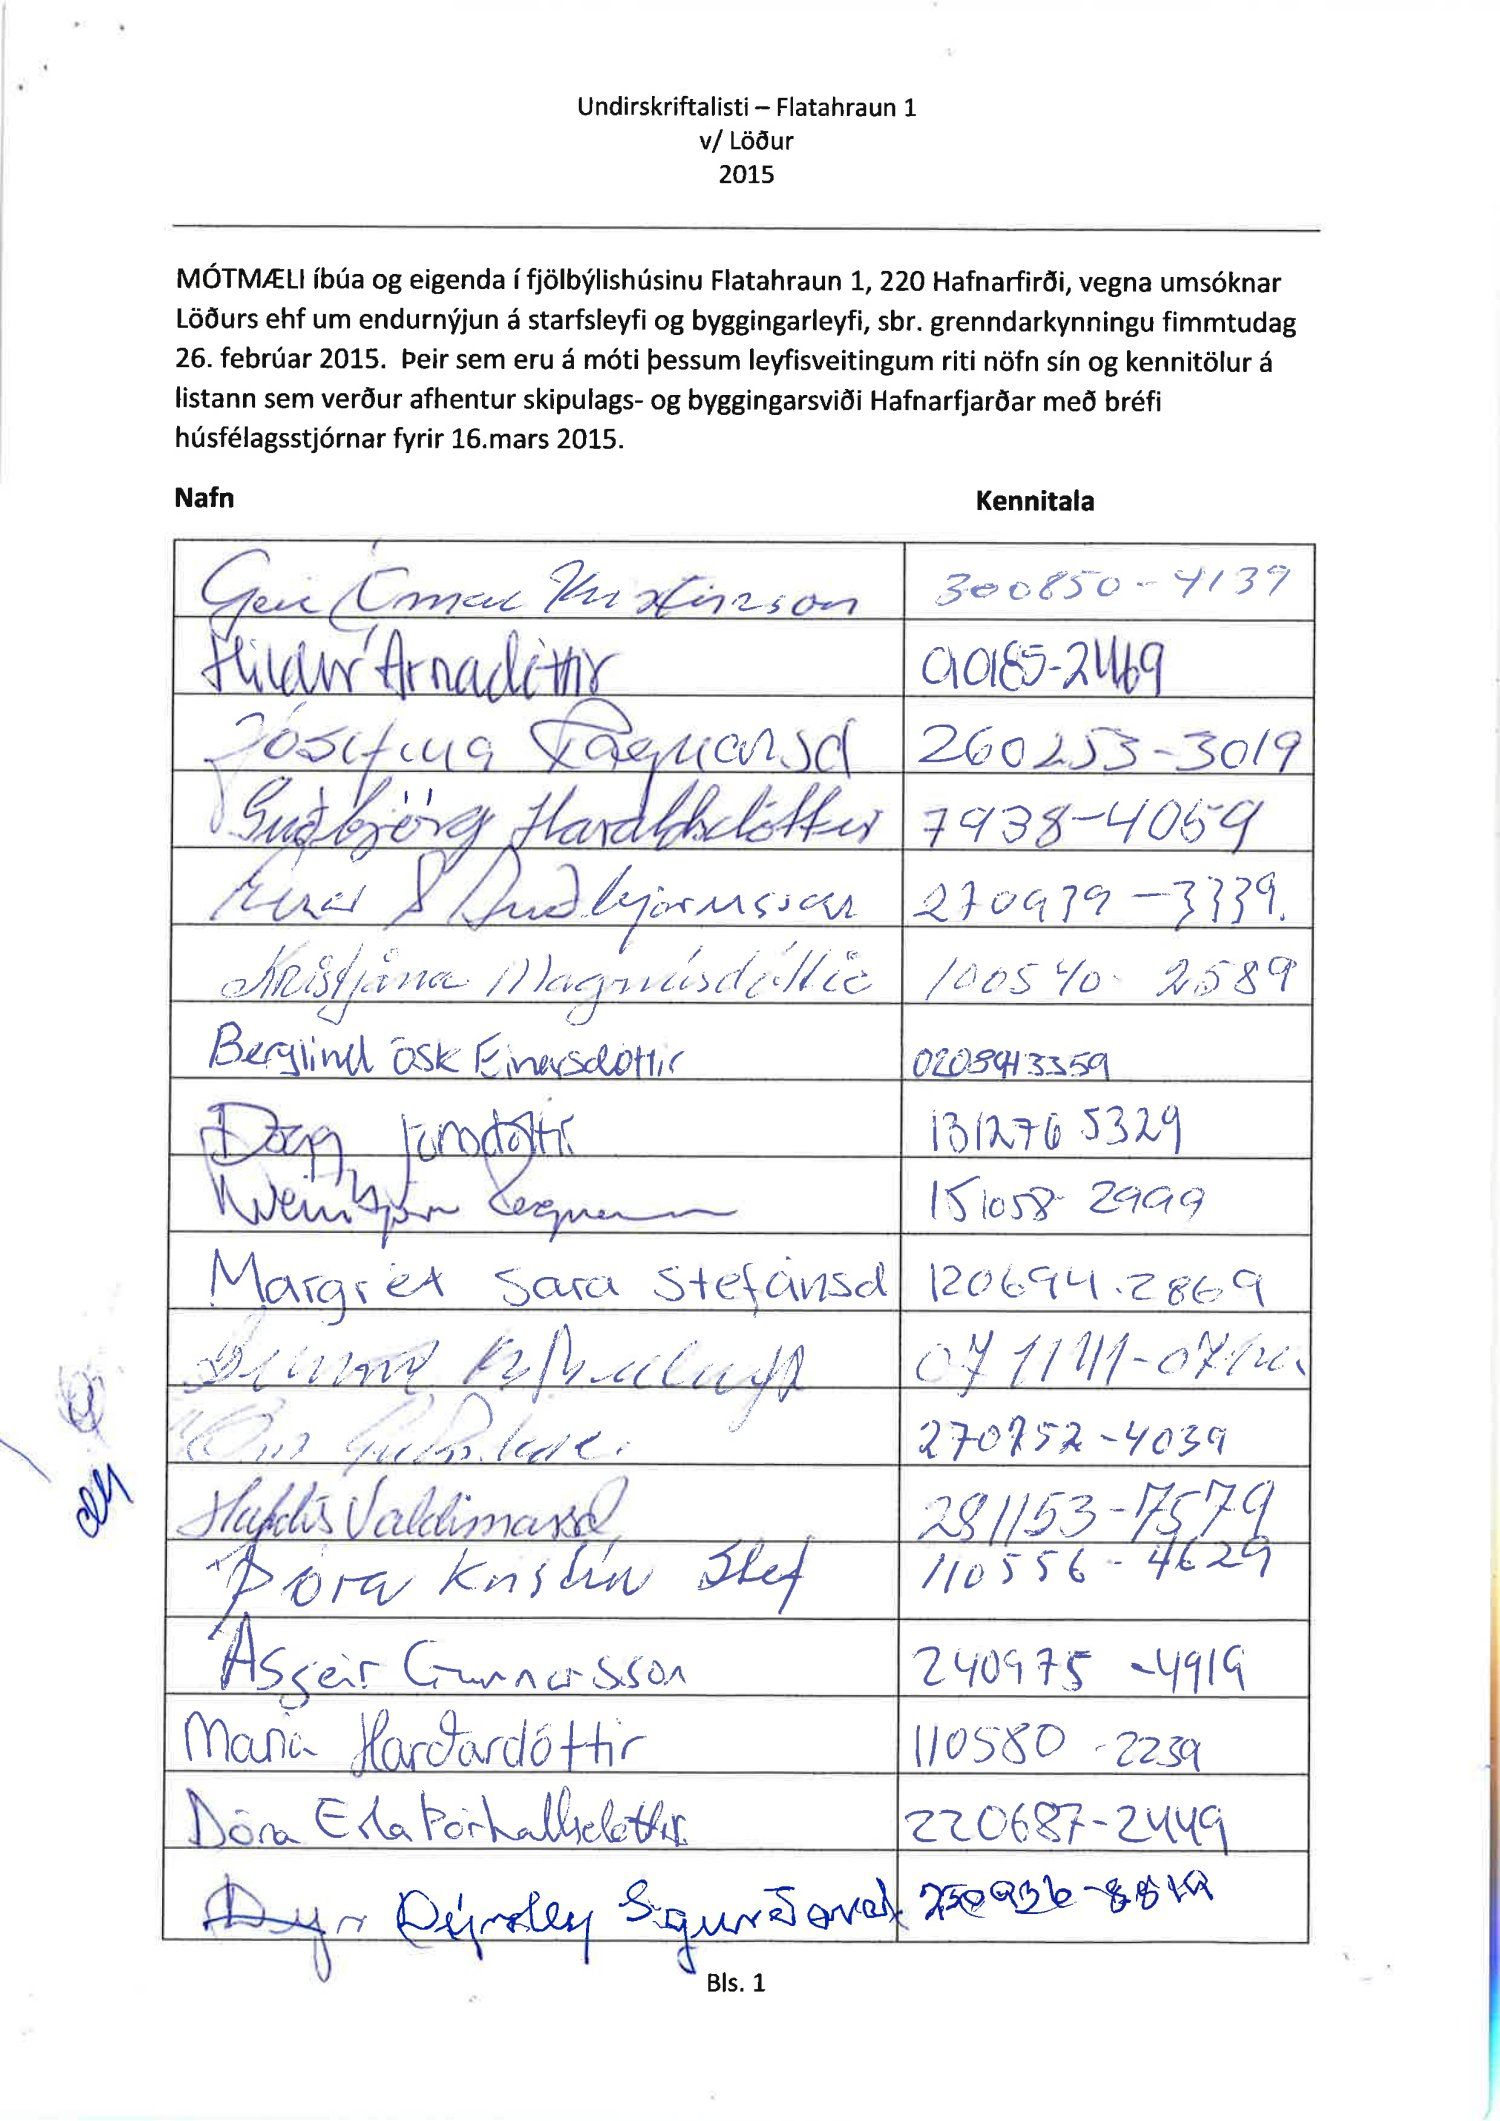 Undirskriftalisti – Flatahraun 1
v/ Löður
2015
MÓTMÆLI íbúa og eigenda í fjölbýlishúsinu Flatahraun 1, 220 Hafnarfirði, vegna umsóknar
Löðurs ehf um endurnýjun á starfsleyfi og byggingarleyfi, sbr. grenndarkynningu fimmtudag
26. febrúar 2015. Þeir sem eru á móti þessum leyfisveitingum riti nöfn sín og kennitölur á
listann sem verður afhentur skipulags- og byggingarsviði Hafnarfjarðar með bréfi
húsfélagsstjórnar fyrir 16.mars 2015.
Nafn Kennitala
Geir Ómar Kristinsson 300850-4139
Hildur Arnadóttir
Jósefina Ragnarsd 260253-3019
Guðbjörg Haraldsdóttir 7938-4059
Einar S Guðbjörnsson 270939-3339.
Kristjána Magnúsdóttir 100540-2589
Berglind Ösk Einarsdóttir
Dögg Jónsdóttir 131276 5329
151058-2999
Margrét Sara Stefánsd 120694.2869
270752-4039
Valdimarsd 291153-7579
Þóra Kristín Stef 110556-4629
Ásgeir Gunnarsson 240975-4919
Maria Harðardóttir 110580-2239
Dóra Erla Þórhallsdóttir 220687-2449
Sigurðard
Bls. 1